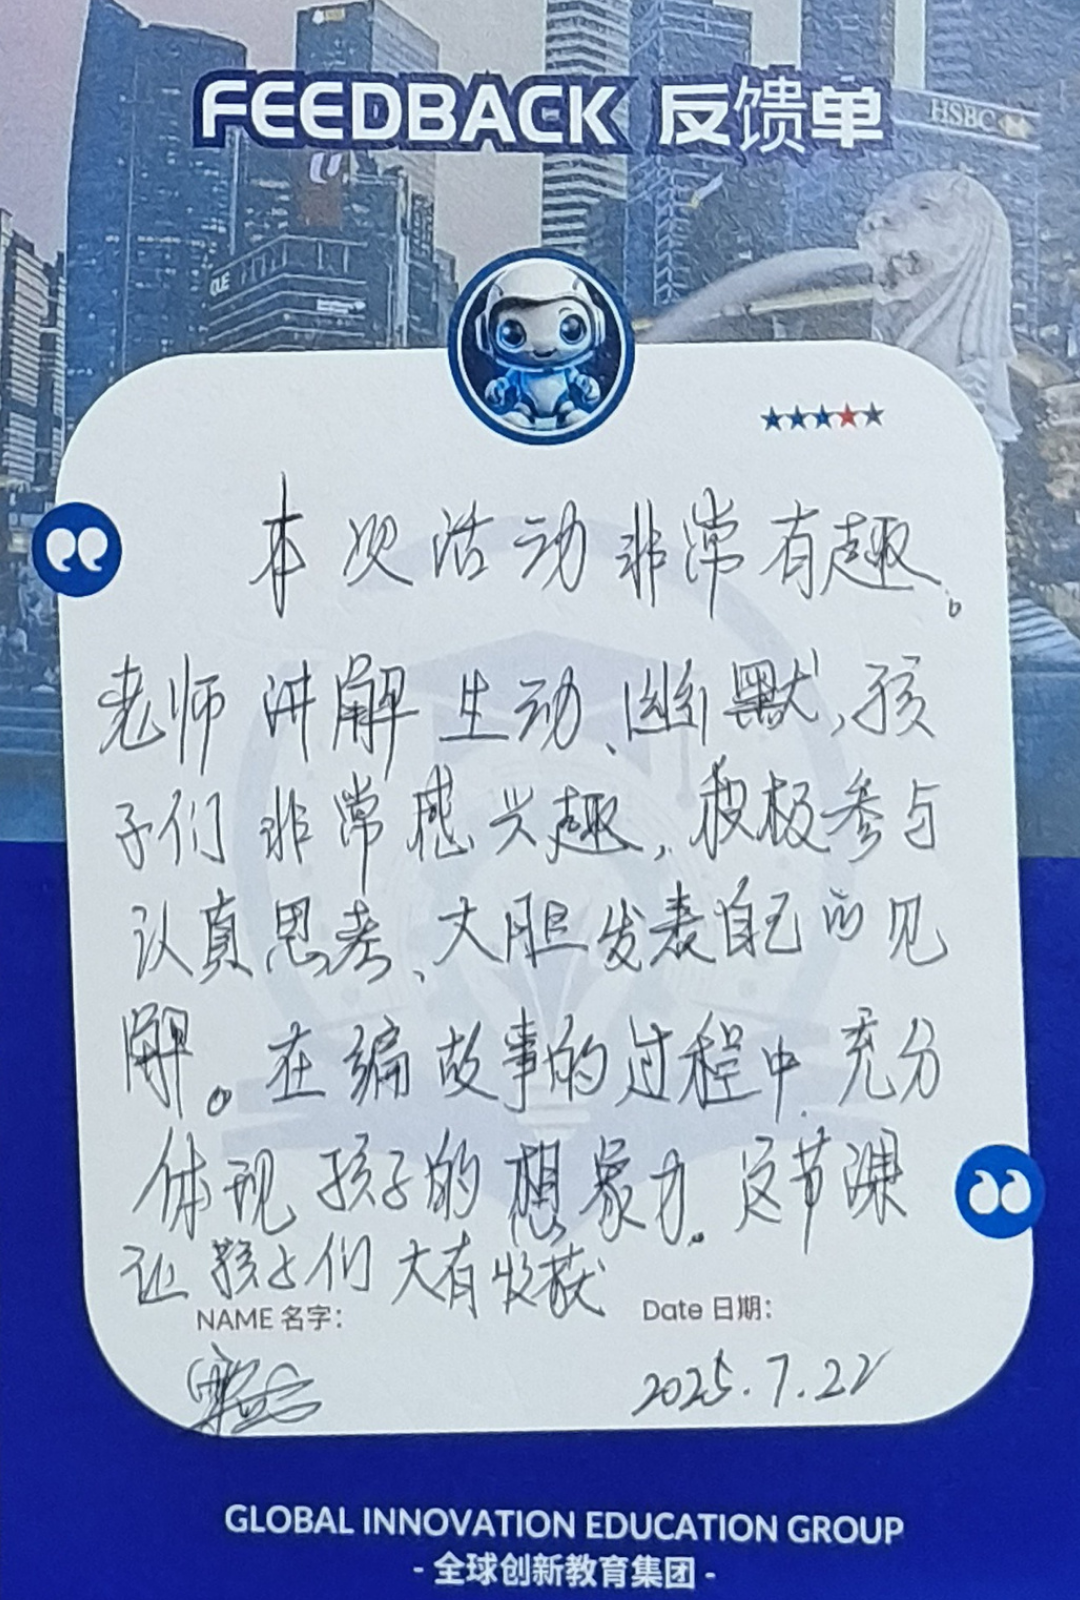 FEEDBACK 反馈单
HSBC
CUE
本次活动非常有趣。
老师讲解生动、幽默,孩
子们非常感兴趣,积极参与
认真思考、大胆发表自己的见
解。在编故事的过程中,充分
体现孩子的想象力。这节课
让孩子们大有收获
NAME 名字:
Date 日期:
2025.7.22
GLOBAL INNOVATION EDUCATION GROUP
- 全球创新教育集团 -